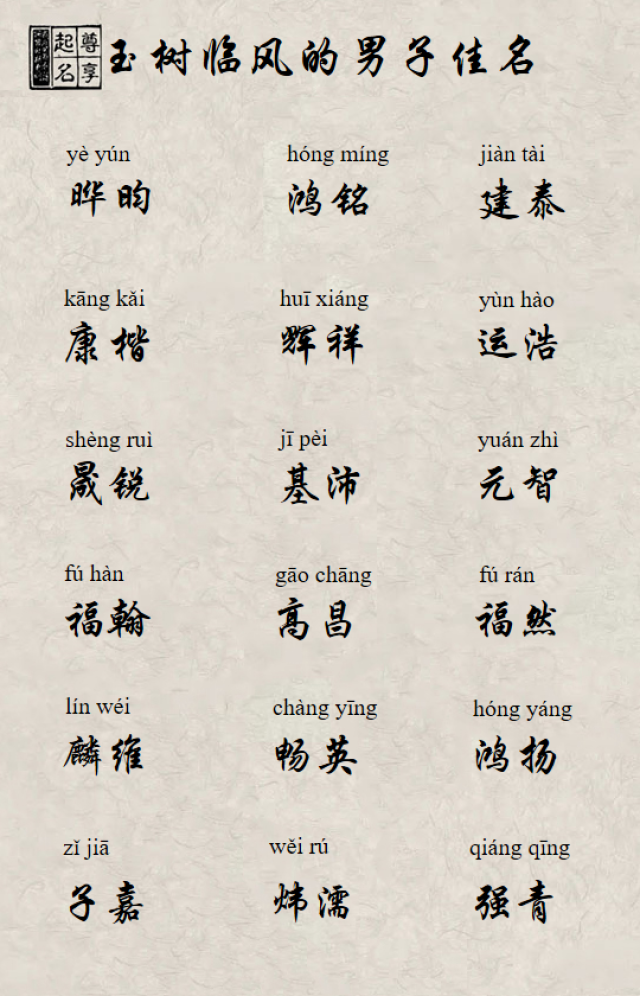 尊享起名
玉树临风的男子佳名
yè yún hóng míng jiàn tài
晔昀 鸿铭 建泰
kāng kǎi huī xiáng yùn hào
康楷 辉祥 运浩
shèng ruì jī pèi yuán zhì
晟锐 基沛 元智
fú hàn gāo chāng fú rán
福翰 高昌 福然
lín wéi chàng yīng hóng yáng
麟维 畅英 鸿扬
zǐ jiā wěi rú qiáng qīng
子嘉 炜濡 强青